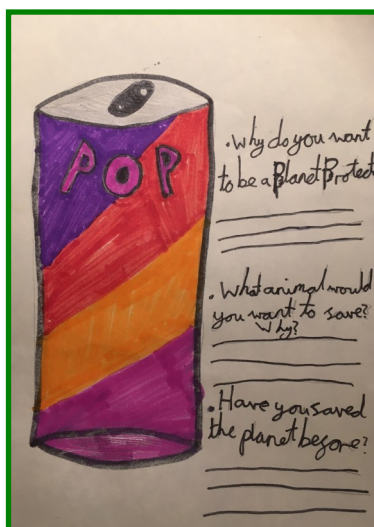 POP
• Why do you want
to be a Planet Protect
• What animal would
you want to save?
Why?
• Have you saved
the planet before?